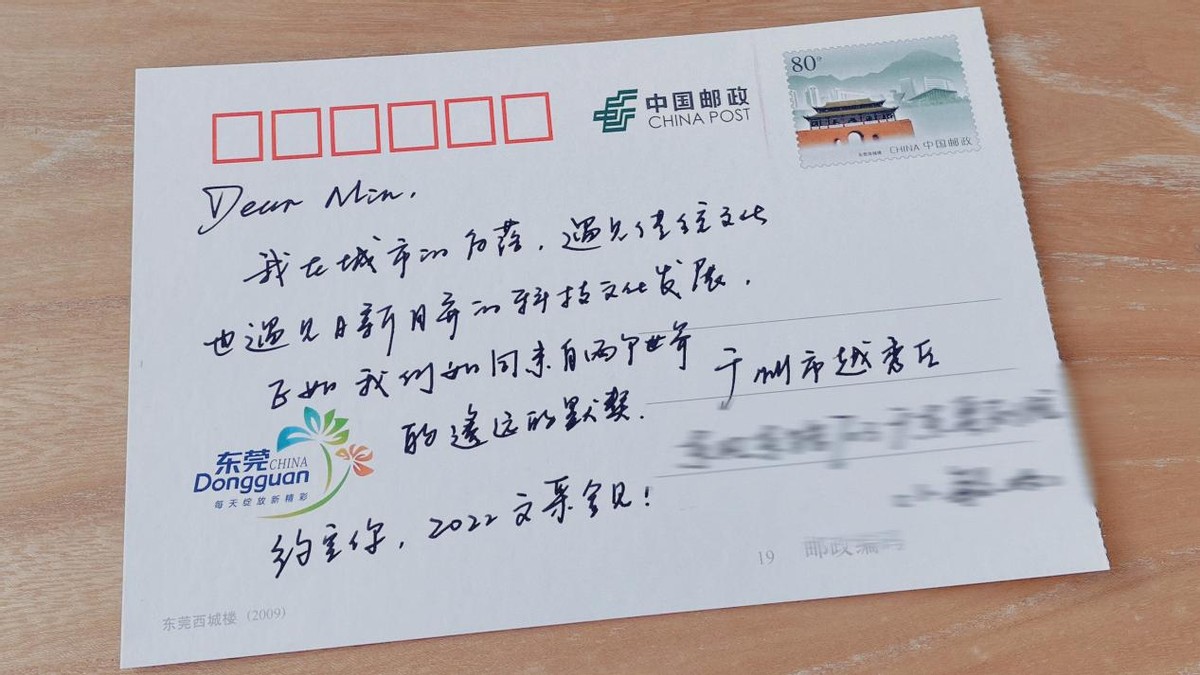 中国邮政
CHINA POST
80分
东莞西城楼 CHINA 中国邮政
Dear Min,
我在城市的角落,遇见传统文化
也遇见日新月异的科技文化发展,
正如我们如同来自两个世界
的遥远的默契.
广州市越秀区
东莞CHINA
Dongguan
每天绽放新精彩
约定你,2022文采会见!
19 邮政编码
东莞西城楼 (2009)